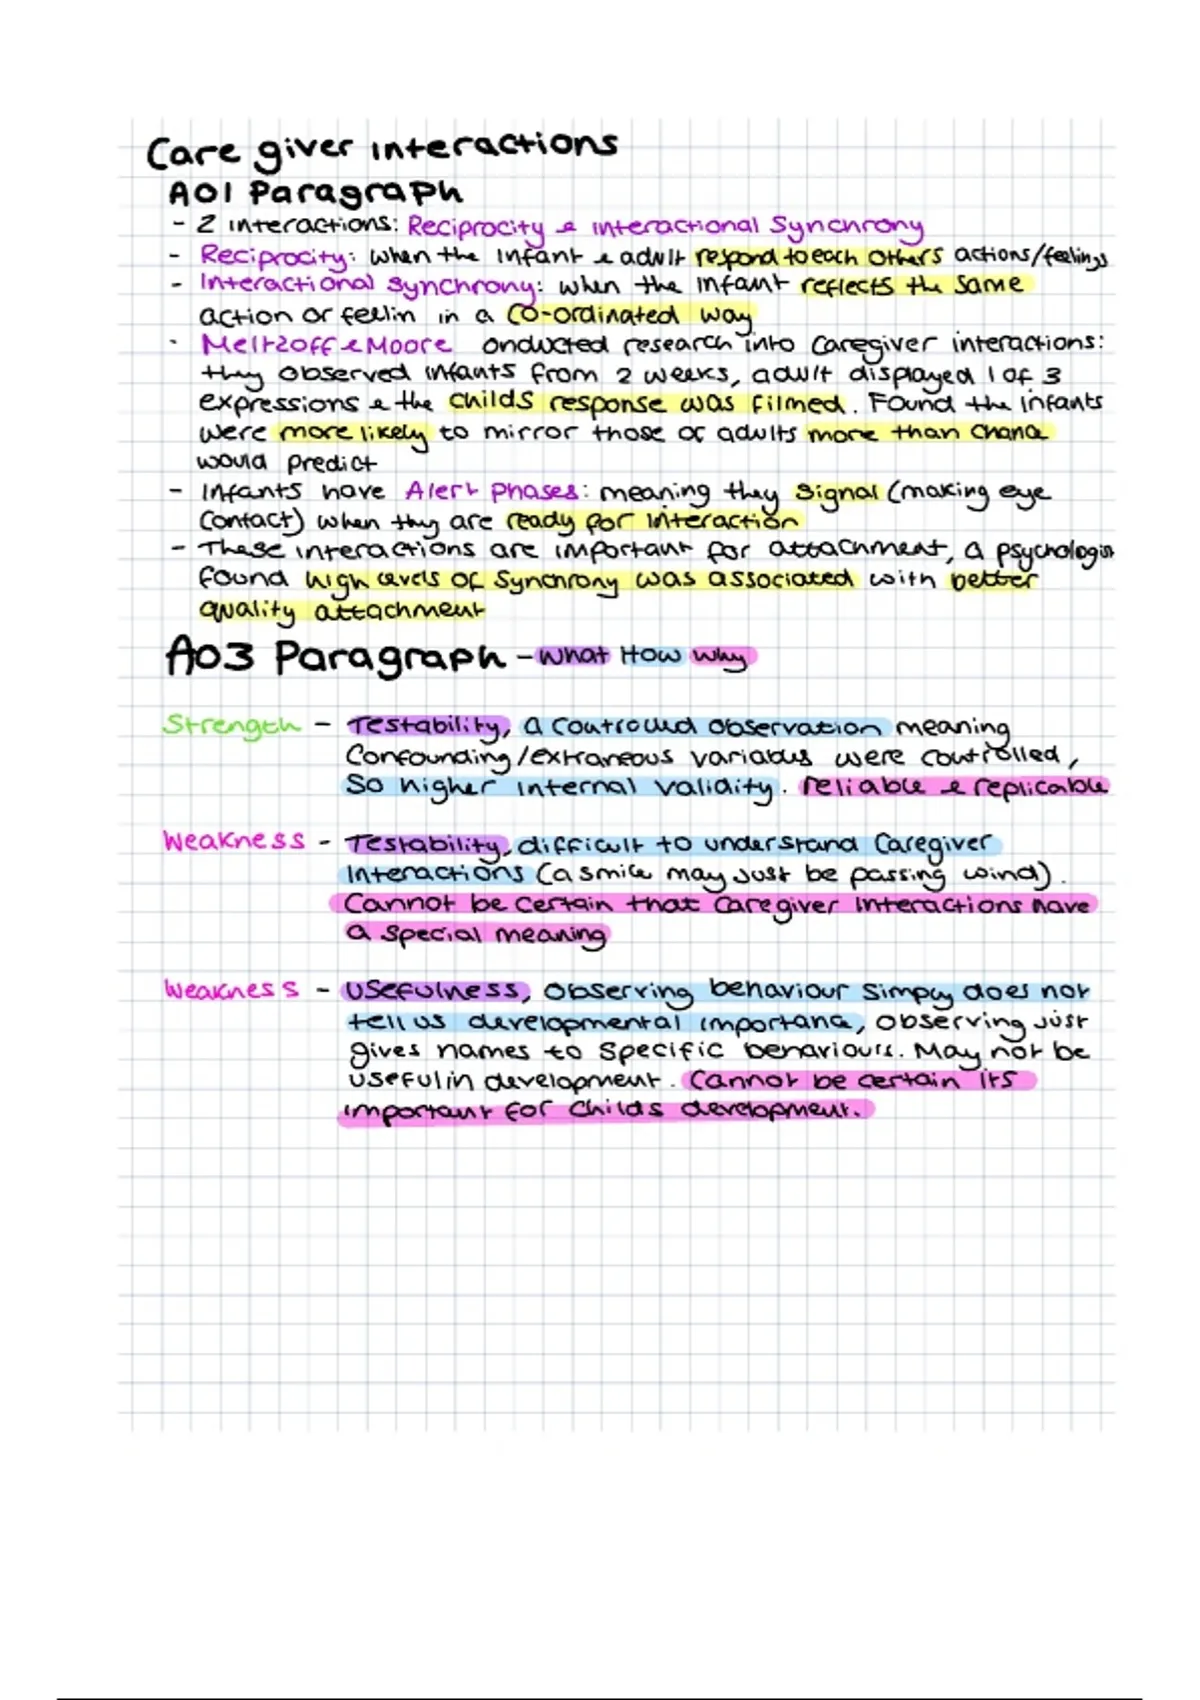 Care giver interactions
AO1 Paragraph
- 2 interactions: Reciprocity & interactional Synchrony
- Reciprocity: when the infant & adult respond to each others actions/feelings
- Interactional synchrony: when the infant reflects the same
action or feelin in a co-ordinated way
- Meltzoff & Moore onducted research into caregiver interactions:
they observed infants from 2 weeks, adult displayed 1 of 3
expressions & the childs response was filmed. Found the infants
were more likely to mirror those of adults more than chance
would predict
- Infants have Alert Phases: meaning they signal (making eye
contact) when they are ready for interaction
- These interactions are important for attachment, a psychologist
found high levels of synchrony was associated with better
quality attachment
AO3 Paragraph - What How Why
Strength - Testability, a controlled observation meaning
confounding/extraneous variables were controlled,
so higher internal validity. reliable & replicable
Weakness - Testability, difficult to understand caregiver
interactions (a smile may just be passing wind).
Cannot be certain that caregiver interactions have
a special meaning
Weakness - Usefulness, observing behaviour simply does not
tell us developmental importance, observing just
gives names to specific behaviours. May not be
useful in development. Cannot be certain its
important for childs development.